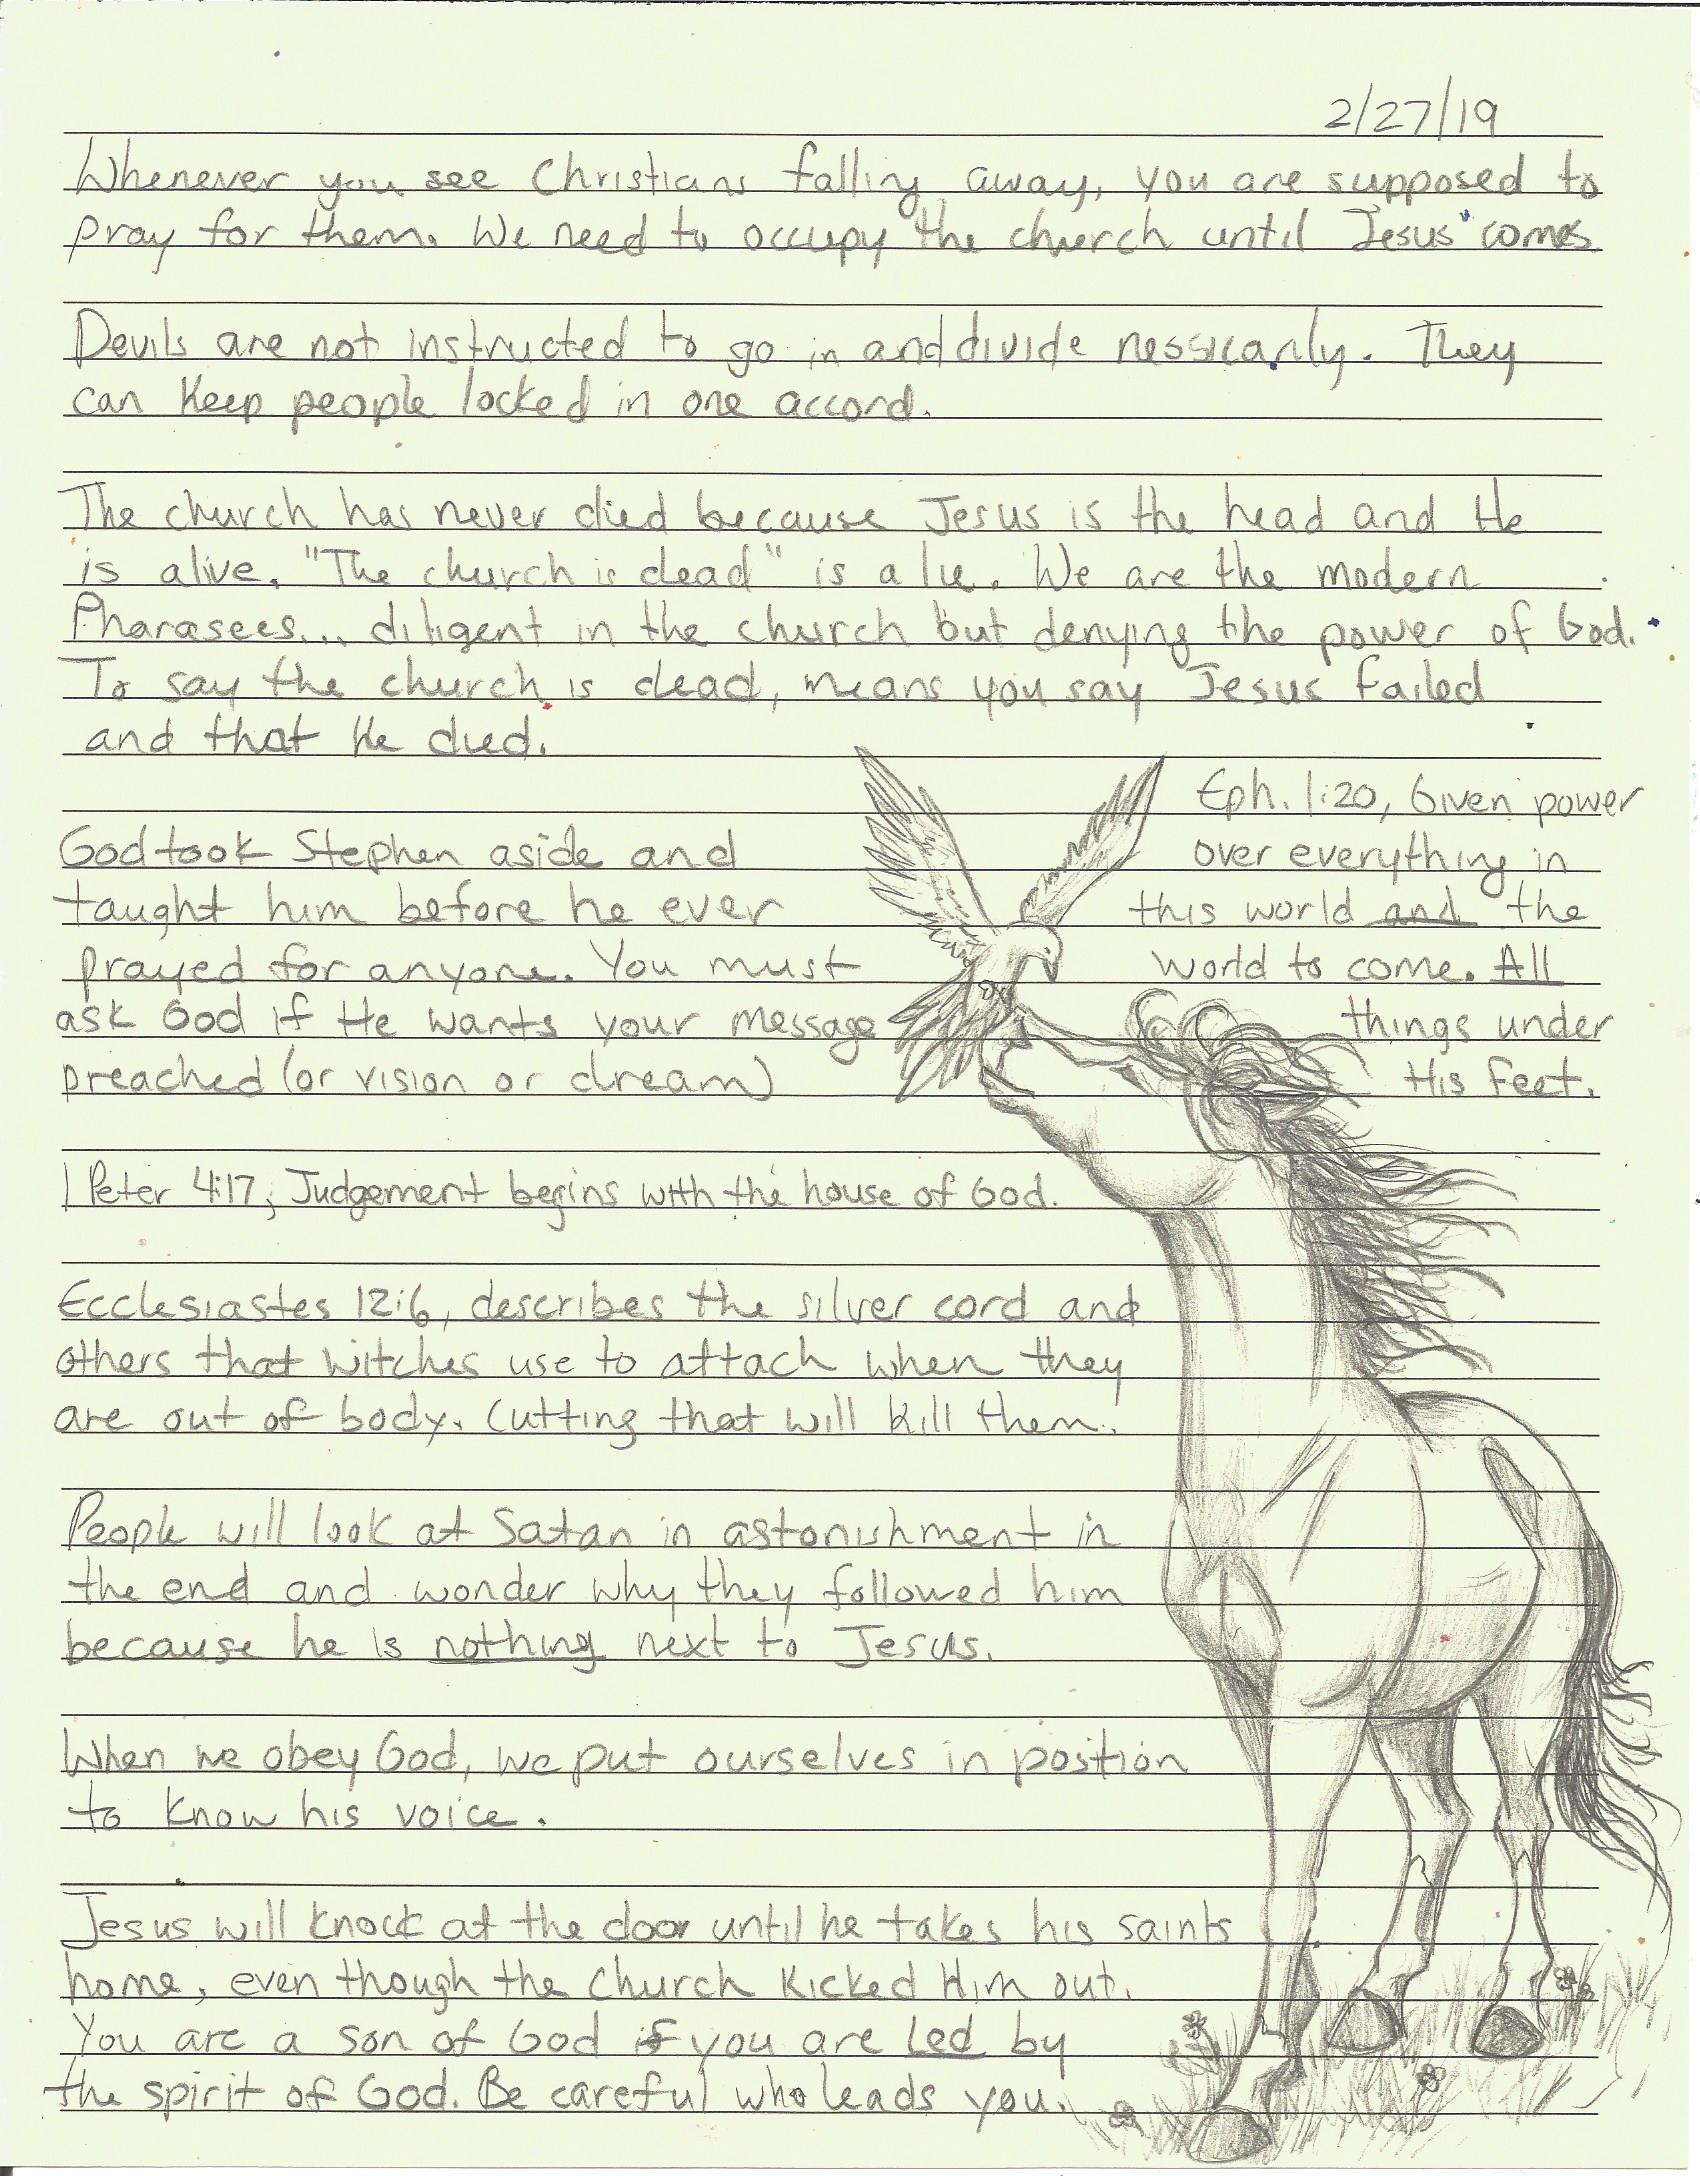 2/27/19
Whenever you see Christians falling away, you are supposed to
pray for them. We need to occupy the church until Jesus comes
Devils are not instructed to go in and divide nessicarily. They
can keep people locked in one accord.
The church has never died because Jesus is the head and He
is alive. "The church is dead" is a lie. We are the modern
Pharasees... diligent in the church but denying the power of God.
To say the church is dead, means you say Jesus failed
and that He died.
God took Stephen aside and
taught him before he ever
prayed for anyone. You must
ask God if He wants your message
preached (or vision or dream)
Eph. 1:20, Given power
over everything in
this world and the
world to come. All
things under
His feet.
1 Peter 4:17, Judgement begins with the house of God.
Ecclesiastes 12:6, describes the silver cord and
others that witches use to attach when they
are out of body. Cutting that will kill them.
People will look at Satan in astonishment in
the end and wonder why they followed him
because he is nothing next to Jesus.
When we obey God, we put ourselves in position
to know his voice.
Jesus will knock at the door until he takes his saints
home, even though the church kicked Him out.
You are a son of God if you are Led by
the spirit of God. Be careful who leads you.